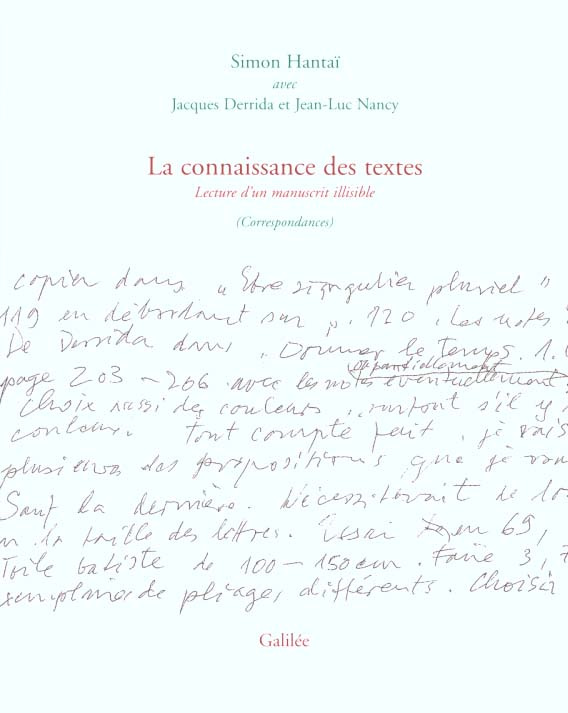 Simon Hantaï
avec
Jacques Derrida et Jean-Luc Nancy
La connaissance des textes
Lecture d'un manuscrit illisible
(Correspondances)
copier dans „ Être singulier pluriel "
119 en débordant sur p. 120. Les notes
De Derrida dans „ Donner le temps. 1.
ou partiellement
page 203 – 206 avec les notes éventuellement
Choix aussi des couleurs, surtout s'il y
couleur. Tout compte fait, je vais
plusieurs des propositions que je
Sauf la dernière. Nécessiterait de
la taille des lettres. Essai en 69,
Toile batiste de 100 – 150 cm. Faire 3,
de pliages différents. Choisir
Galilée